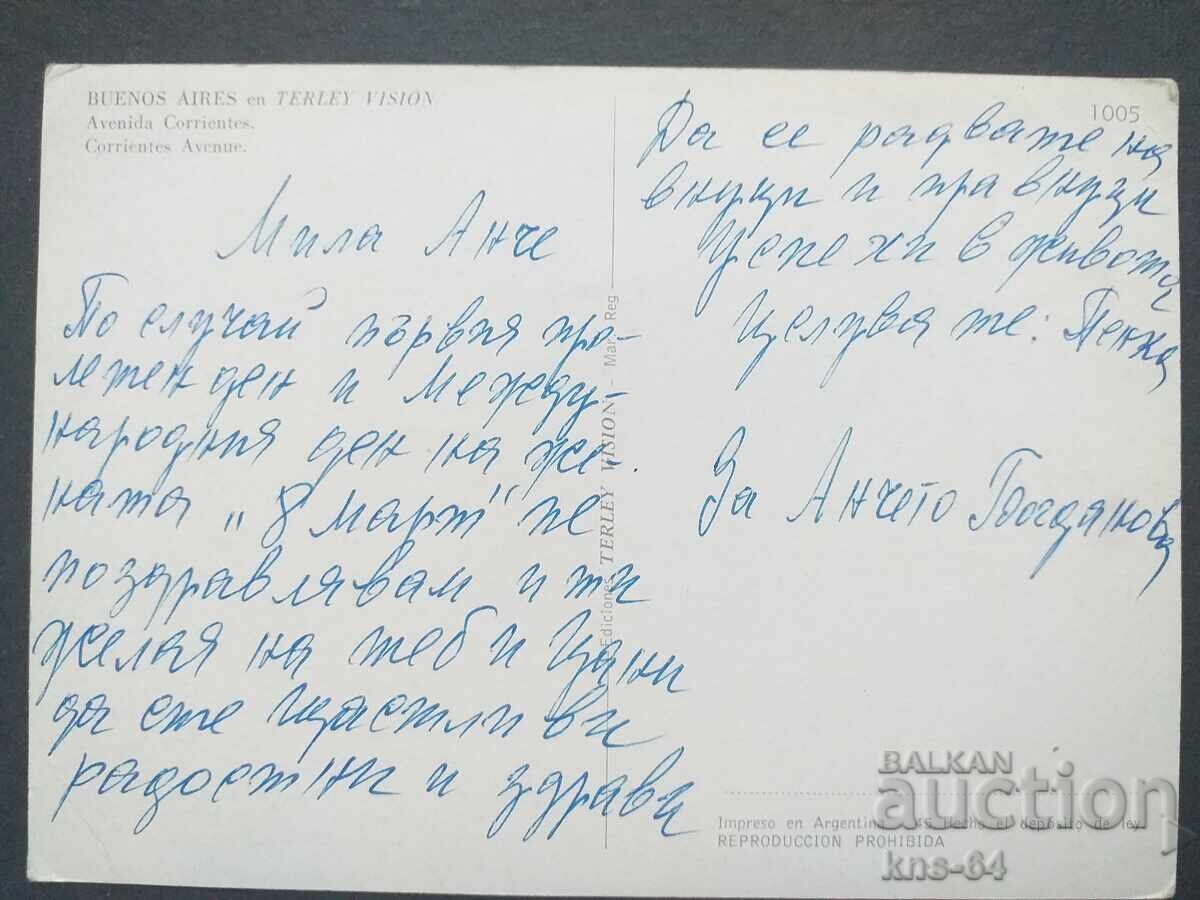 BUENOS AIRES en TERLEY VISION
Avenida Corrientes.
Corrientes Avenue.
1005
Мила Анче
По случай първия про-
летен ден и между-
народния ден на же-
ната „8 март" те
поздравлявам и ти
желая на теб и Цани
да сте щастливи
радостни и здрави
Да се радвате на
внуци и правнуци
Успехи в живота
Целува те: Пенка
За Анчето Богданова
Ediciones TERLEY VISION - Mar Reg
Impreso en Argentina 45 Hecho el depósito de ley
REPRODUCCION PROHIBIDA
BALKAN
auction
kns-64